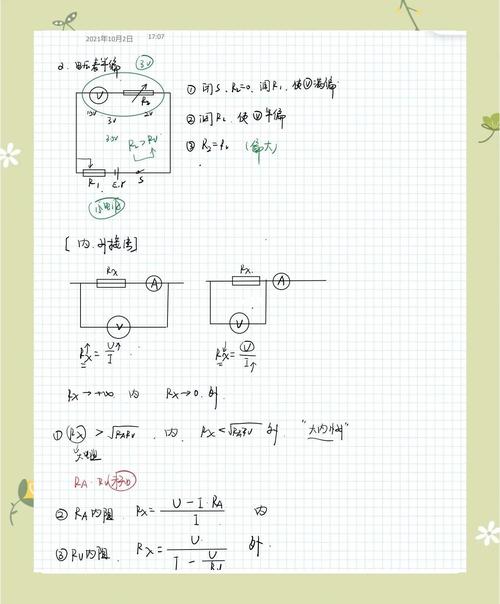 2021年10月2日 17:07
2. 电压表半偏 3V
V R₂
3V 2V
R₂>RV
R₁ E.r S
① 闭S, R₂=0, 调R₁, 使V满偏
② 调R₂, 使V半偏
③ R₂=Rv (偏大)
[内.外接法]
Rx A
V
Rx A
V
Rx↑=U↑/I
Rx↓=U/I↑
Rx→+∞ 内 Rx→0. 外
① Rx > √RARV , 内, Rx<√RARV 外. "大内小外"
大电阻
RA.RV
② RA内阻. Rx= (U-I·RA)/I 内
③ RV内阻. Rx= U/(I-U/RV) 外.